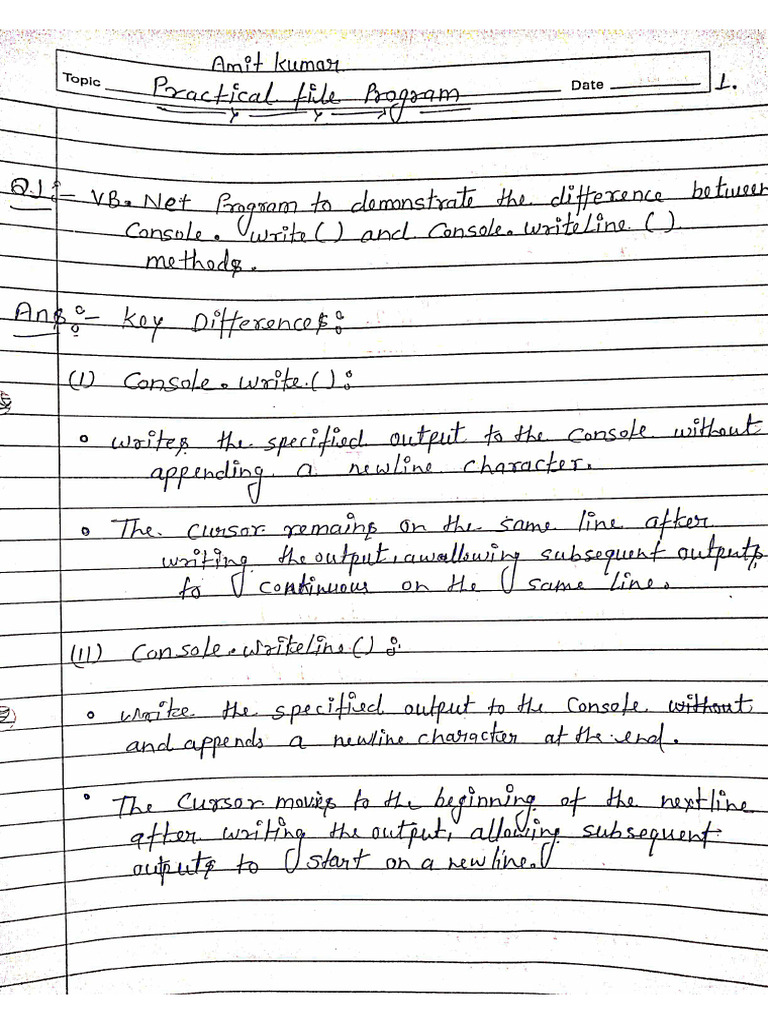 Amit Kumar
Topic Practical file Program Date 1.
Q.1:- VB.Net Program to demonstrate the difference between
Console.write() and Console.writeLine()
methods.
Ans:- Key Differences:
(I) Console.write():
• writes the specified output to the console without
appending a newline character.
• The cursor remains on the same line after
writing the output, awallowing subsequent outputs
to continuous on the same line.
(II) Console.writeline():
• write the specified output to the console without
and appends a newline character at the end.
• The cursor moves to the beginning of the next line
after writing the output, allowing subsequent
outputs to start on a new line.